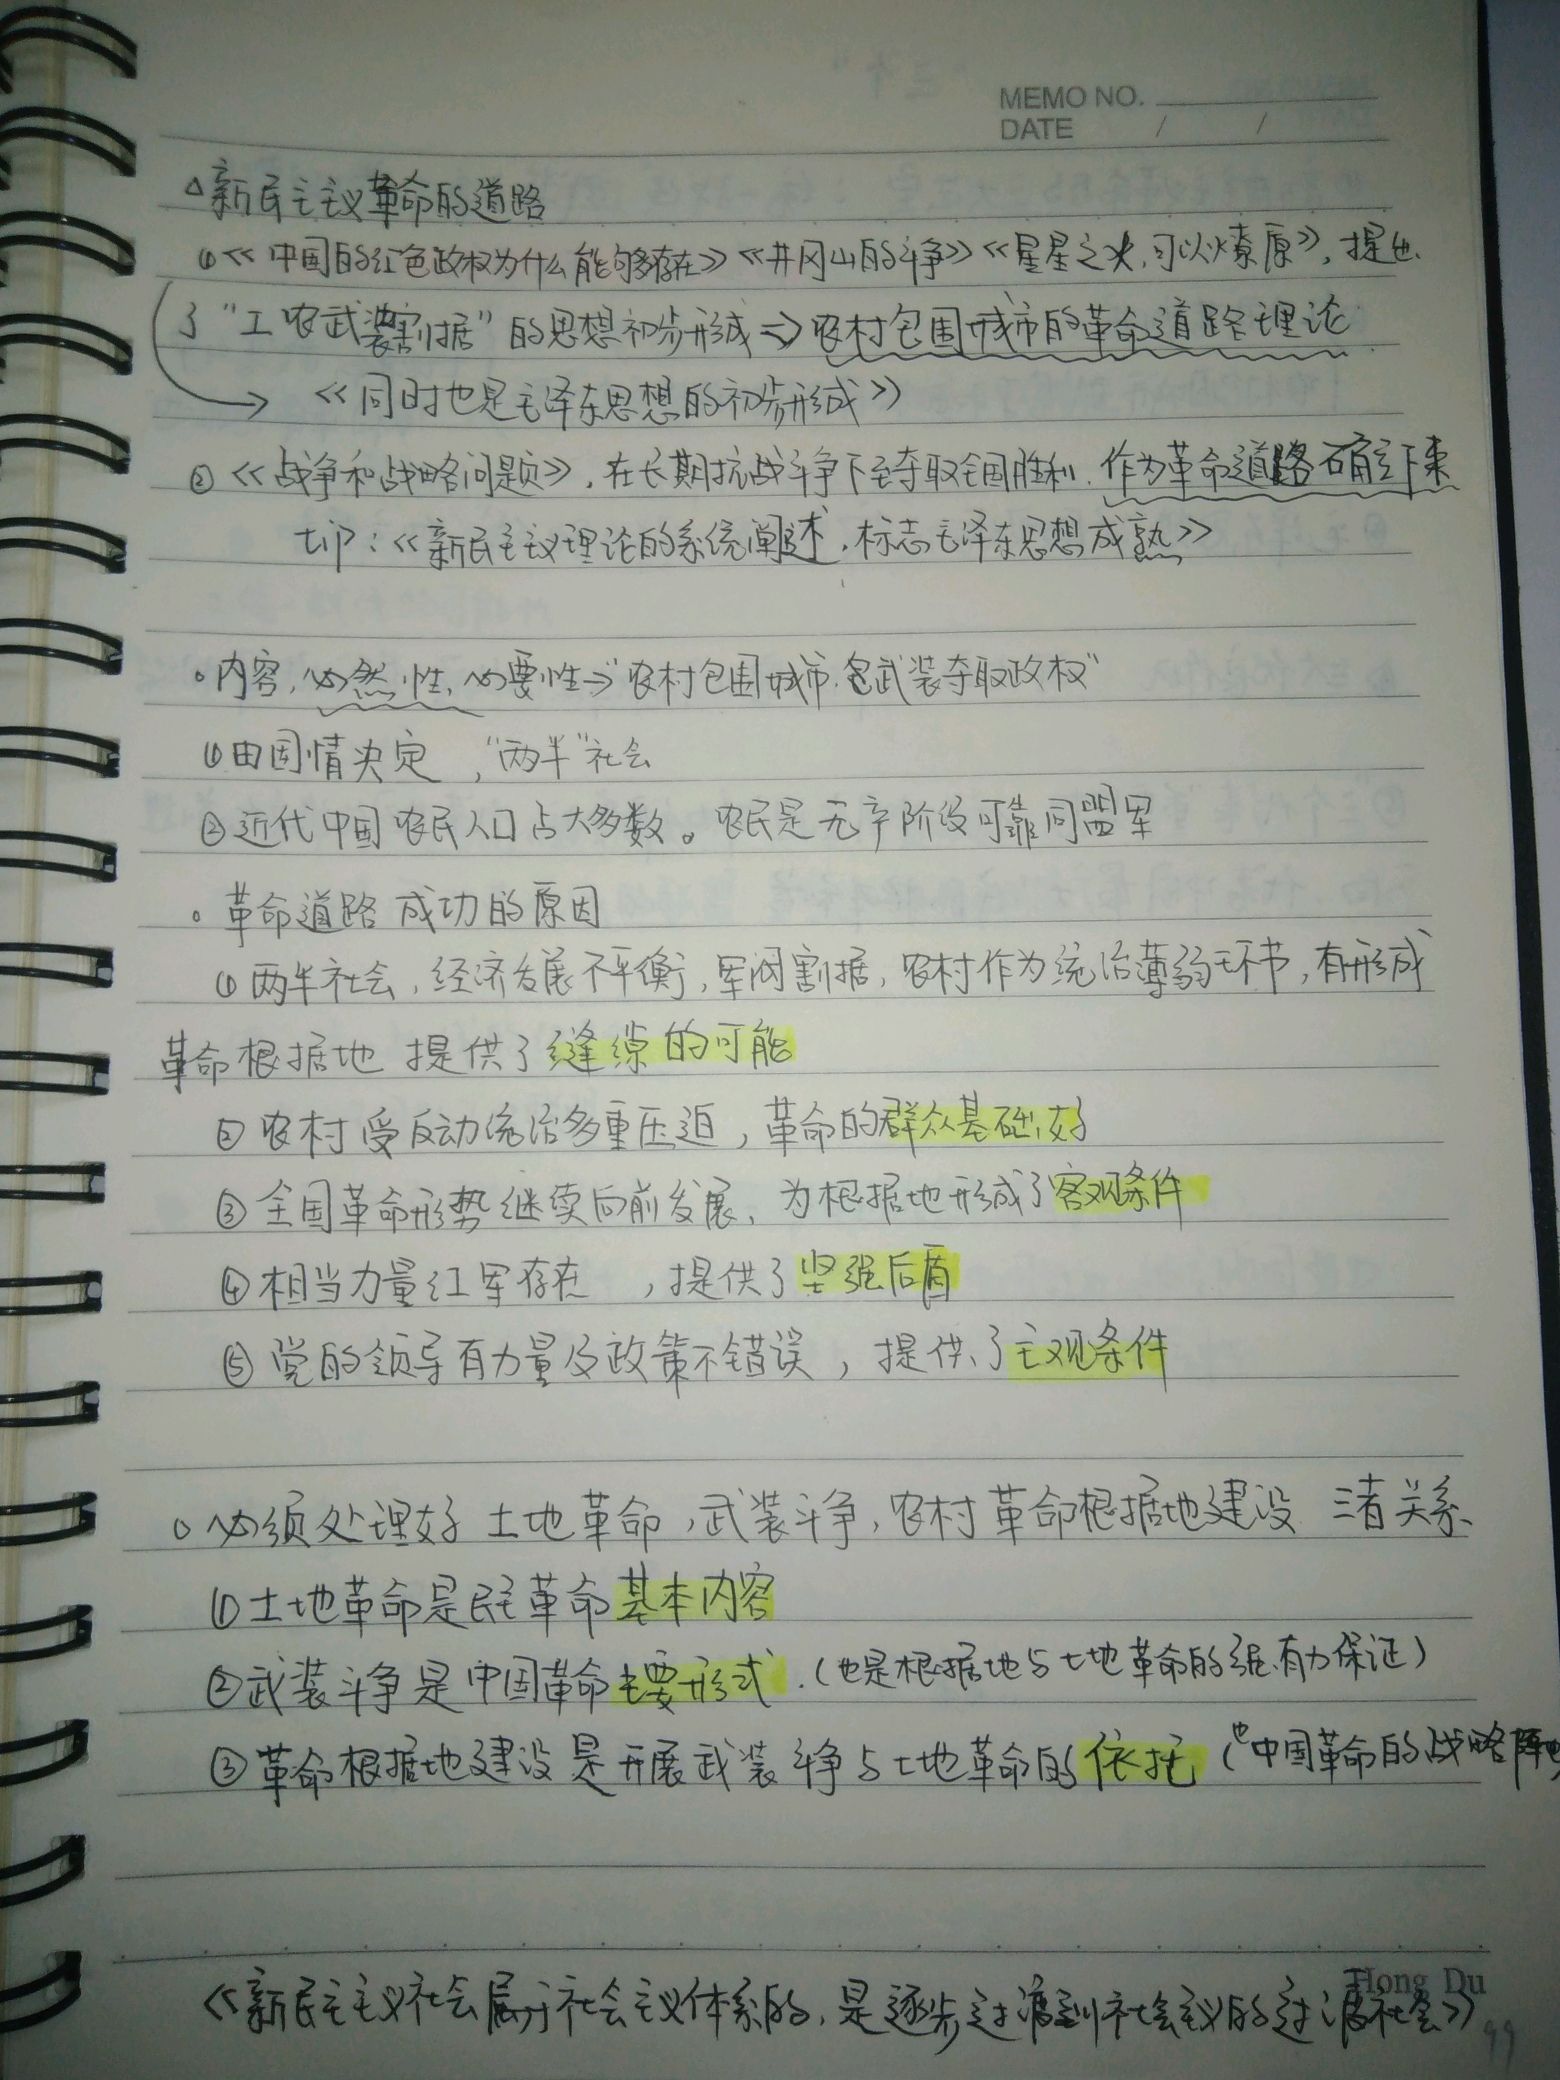 MEMO NO.
DATE / /
△新民主主义革命的道路
①《中国的红色政权为什么能够存在》《井冈山的斗争》《星星之火,可以燎原》,提出
了"工农武装割据"的思想初步形成⇒农村包围城市的革命道路理论
→《同时也是毛泽东思想的初步形成》
②《战争和战略问题》,在长期抗战斗争下至夺取全国胜利,作为革命道路确立下来
tip:《新民主主义理论的系统阐述,标志毛泽东思想成熟》
。内容,必然性,必要性→"农村包围城市,武装夺取政权"
①由国情决定,"两半"社会
②近代中国农民人口占大多数。农民是无产阶级可靠同盟军
。革命道路成功的原因
①两半社会,经济发展不平衡,军阀割据,农村作为统治薄弱环节,有形成
革命根据地 提供了缝隙的可能
②农村受反动统治多重压迫,革命的群众基础好
③全国革命形势继续向前发展,为根据地形成了客观条件
④相当力量红军存在,提供了坚强后盾
⑤党的领导有力量及政策不错误,提供了主观条件
。必须处理好土地革命,武装斗争,农村革命根据地建设 三者关系
①土地革命是民主革命基本内容
②武装斗争是中国革命主要形式.(也是根据地与土地革命的强有力保证)
③革命根据地建设是开展武装斗争与土地革命的依托(也中国革命的战略阵地
Hong Du
《新民主主义社会属于社会主义体系的,是逐步过渡到社会主义的过渡社会》
99